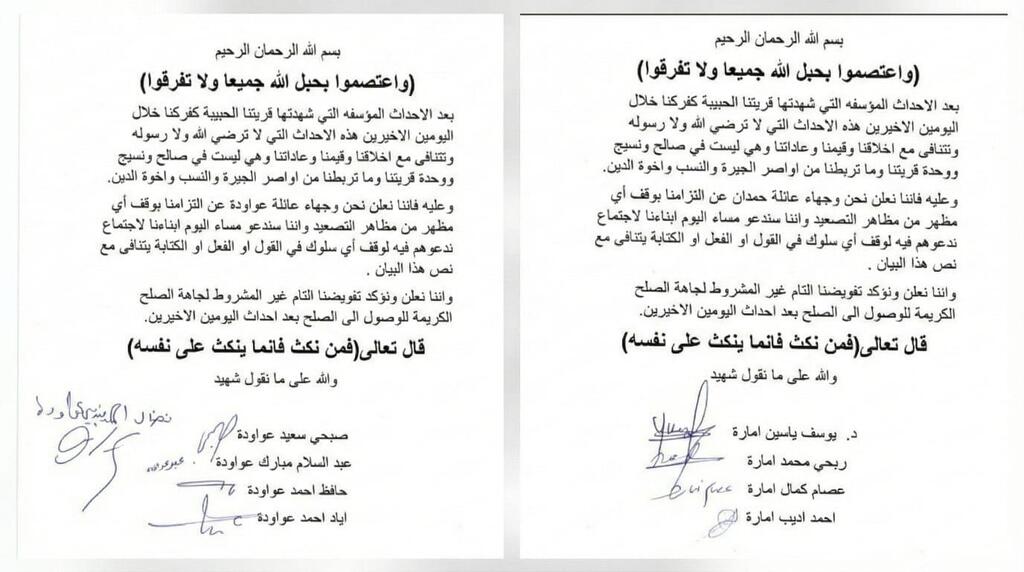 بسم الله الرحمان الرحيم
(واعتصموا بحبل الله جميعا ولا تفرقوا)
بعد الاحداث المؤسفه التي شهدتها قريتنا الحبيبة كفركنا خلال
اليومين الاخيرين هذه الاحداث التي لا ترضي الله ولا رسوله
وتتنافى مع اخلاقنا وقيمنا وعاداتنا وهي ليست في صالح ونسيج
ووحدة قريتنا وما تربطنا من اواصر الجيرة والنسب واخوة الدين.
وعليه فاننا نعلن نحن وجهاء عائلة حمدان عن التزامنا بوقف أي
مظهر من مظاهر التصعيد واننا سندعو مساء اليوم ابناءنا لاجتماع
ندعوهم فيه لوقف أي سلوك في القول او الفعل او الكتابة يتنافى مع
نص هذا البيان .
واننا نعلن ونؤكد تفويضنا التام غير المشروط لجاهة الصلح
الكريمة للوصول الى الصلح بعد احداث اليومين الاخيرين.
قال تعالى(فمن نكث فانما ينكث على نفسه)
والله على ما نقول شهيد
د. يوسف ياسين امارة
ربحي محمد امارة
عصام كمال امارة
احمد اديب امارة
بسم الله الرحمان الرحيم
(واعتصموا بحبل الله جميعا ولا تفرقوا)
بعد الاحداث المؤسفه التي شهدتها قريتنا الحبيبة كفركنا خلال
اليومين الاخيرين هذه الاحداث التي لا ترضي الله ولا رسوله
وتتنافى مع اخلاقنا وقيمنا وعاداتنا وهي ليست في صالح ونسيج
ووحدة قريتنا وما تربطنا من اواصر الجيرة والنسب واخوة الدين.
وعليه فاننا نعلن نحن وجهاء عائلة عواودة عن التزامنا بوقف أي
مظهر من مظاهر التصعيد واننا سندعو مساء اليوم ابناءنا لاجتماع
ندعوهم فيه لوقف أي سلوك في القول او الفعل او الكتابة يتنافى مع
نص هذا البيان .
واننا نعلن ونؤكد تفويضنا التام غير المشروط لجاهة الصلح
الكريمة للوصول الى الصلح بعد احداث اليومين الاخيرين.
قال تعالى(فمن نكث فانما ينكث على نفسه)
والله على ما نقول شهيد
صبحي سعيد عواودة
عبد السلام مبارك عواودة
حافظ احمد عواودة
اياد احمد عواودة
نضال عواودة